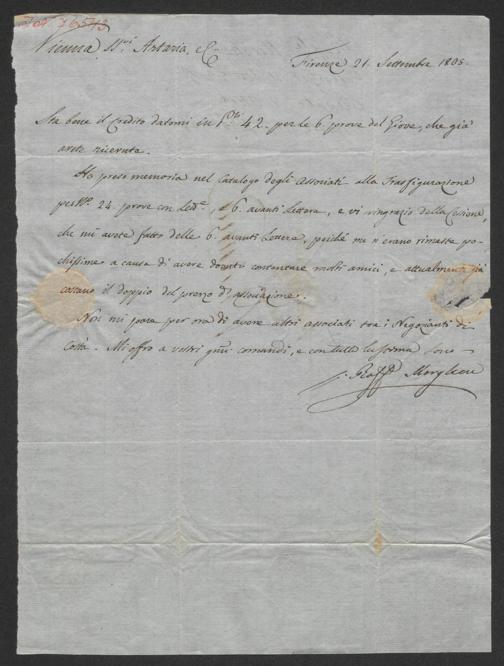 Vienna, Artaria, e C.
Firenze 21. Settembre 1805.
Sta bene il credito datomi in 42. per le 6 prove del Giove, che già
avete ricevuta.
Ho preso memoria nel Catalogo degli Associati alla Trasfigurazione
per 24. prove con e 6 avanti Lettera, e vi ringrazio della cessione,
che mi avete fatto delle 6. avanti Lettera, poiché me n'erano rimaste po-
chissime a causa di avere dovuto contentare molti amici, e attualmente già
costano il doppio del prezzo d'associazione.
Non mi pare per ora di avere altri associati tra i Negozianti di
costà. Mi offro a vostri comandi, e con tutta la stima sono
Raff. Morghen